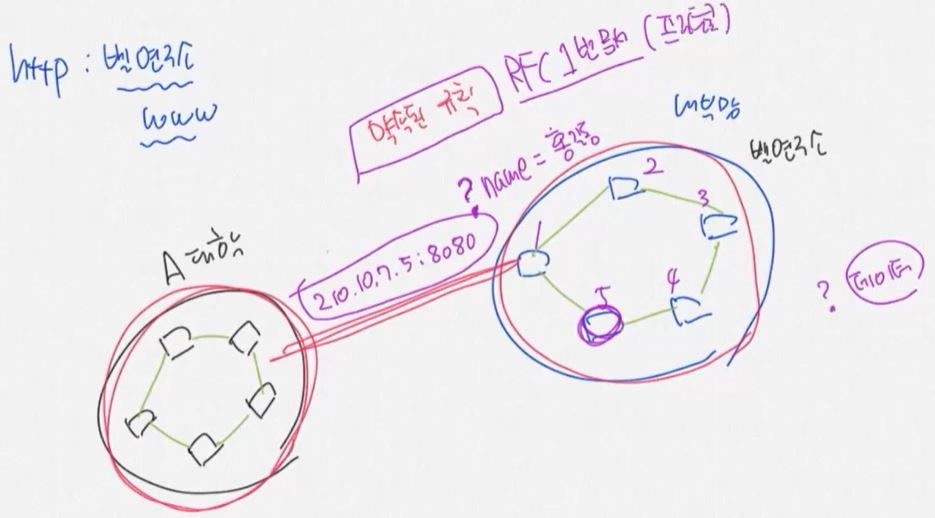 http : 벨연구소
www
약속된 규칙
RFC 1번문서 (프로토콜)
내부망
벨연구소
? name = 홍길동
210.10.7.5:8080
A대학
1
2
3
4
5
? 데이터